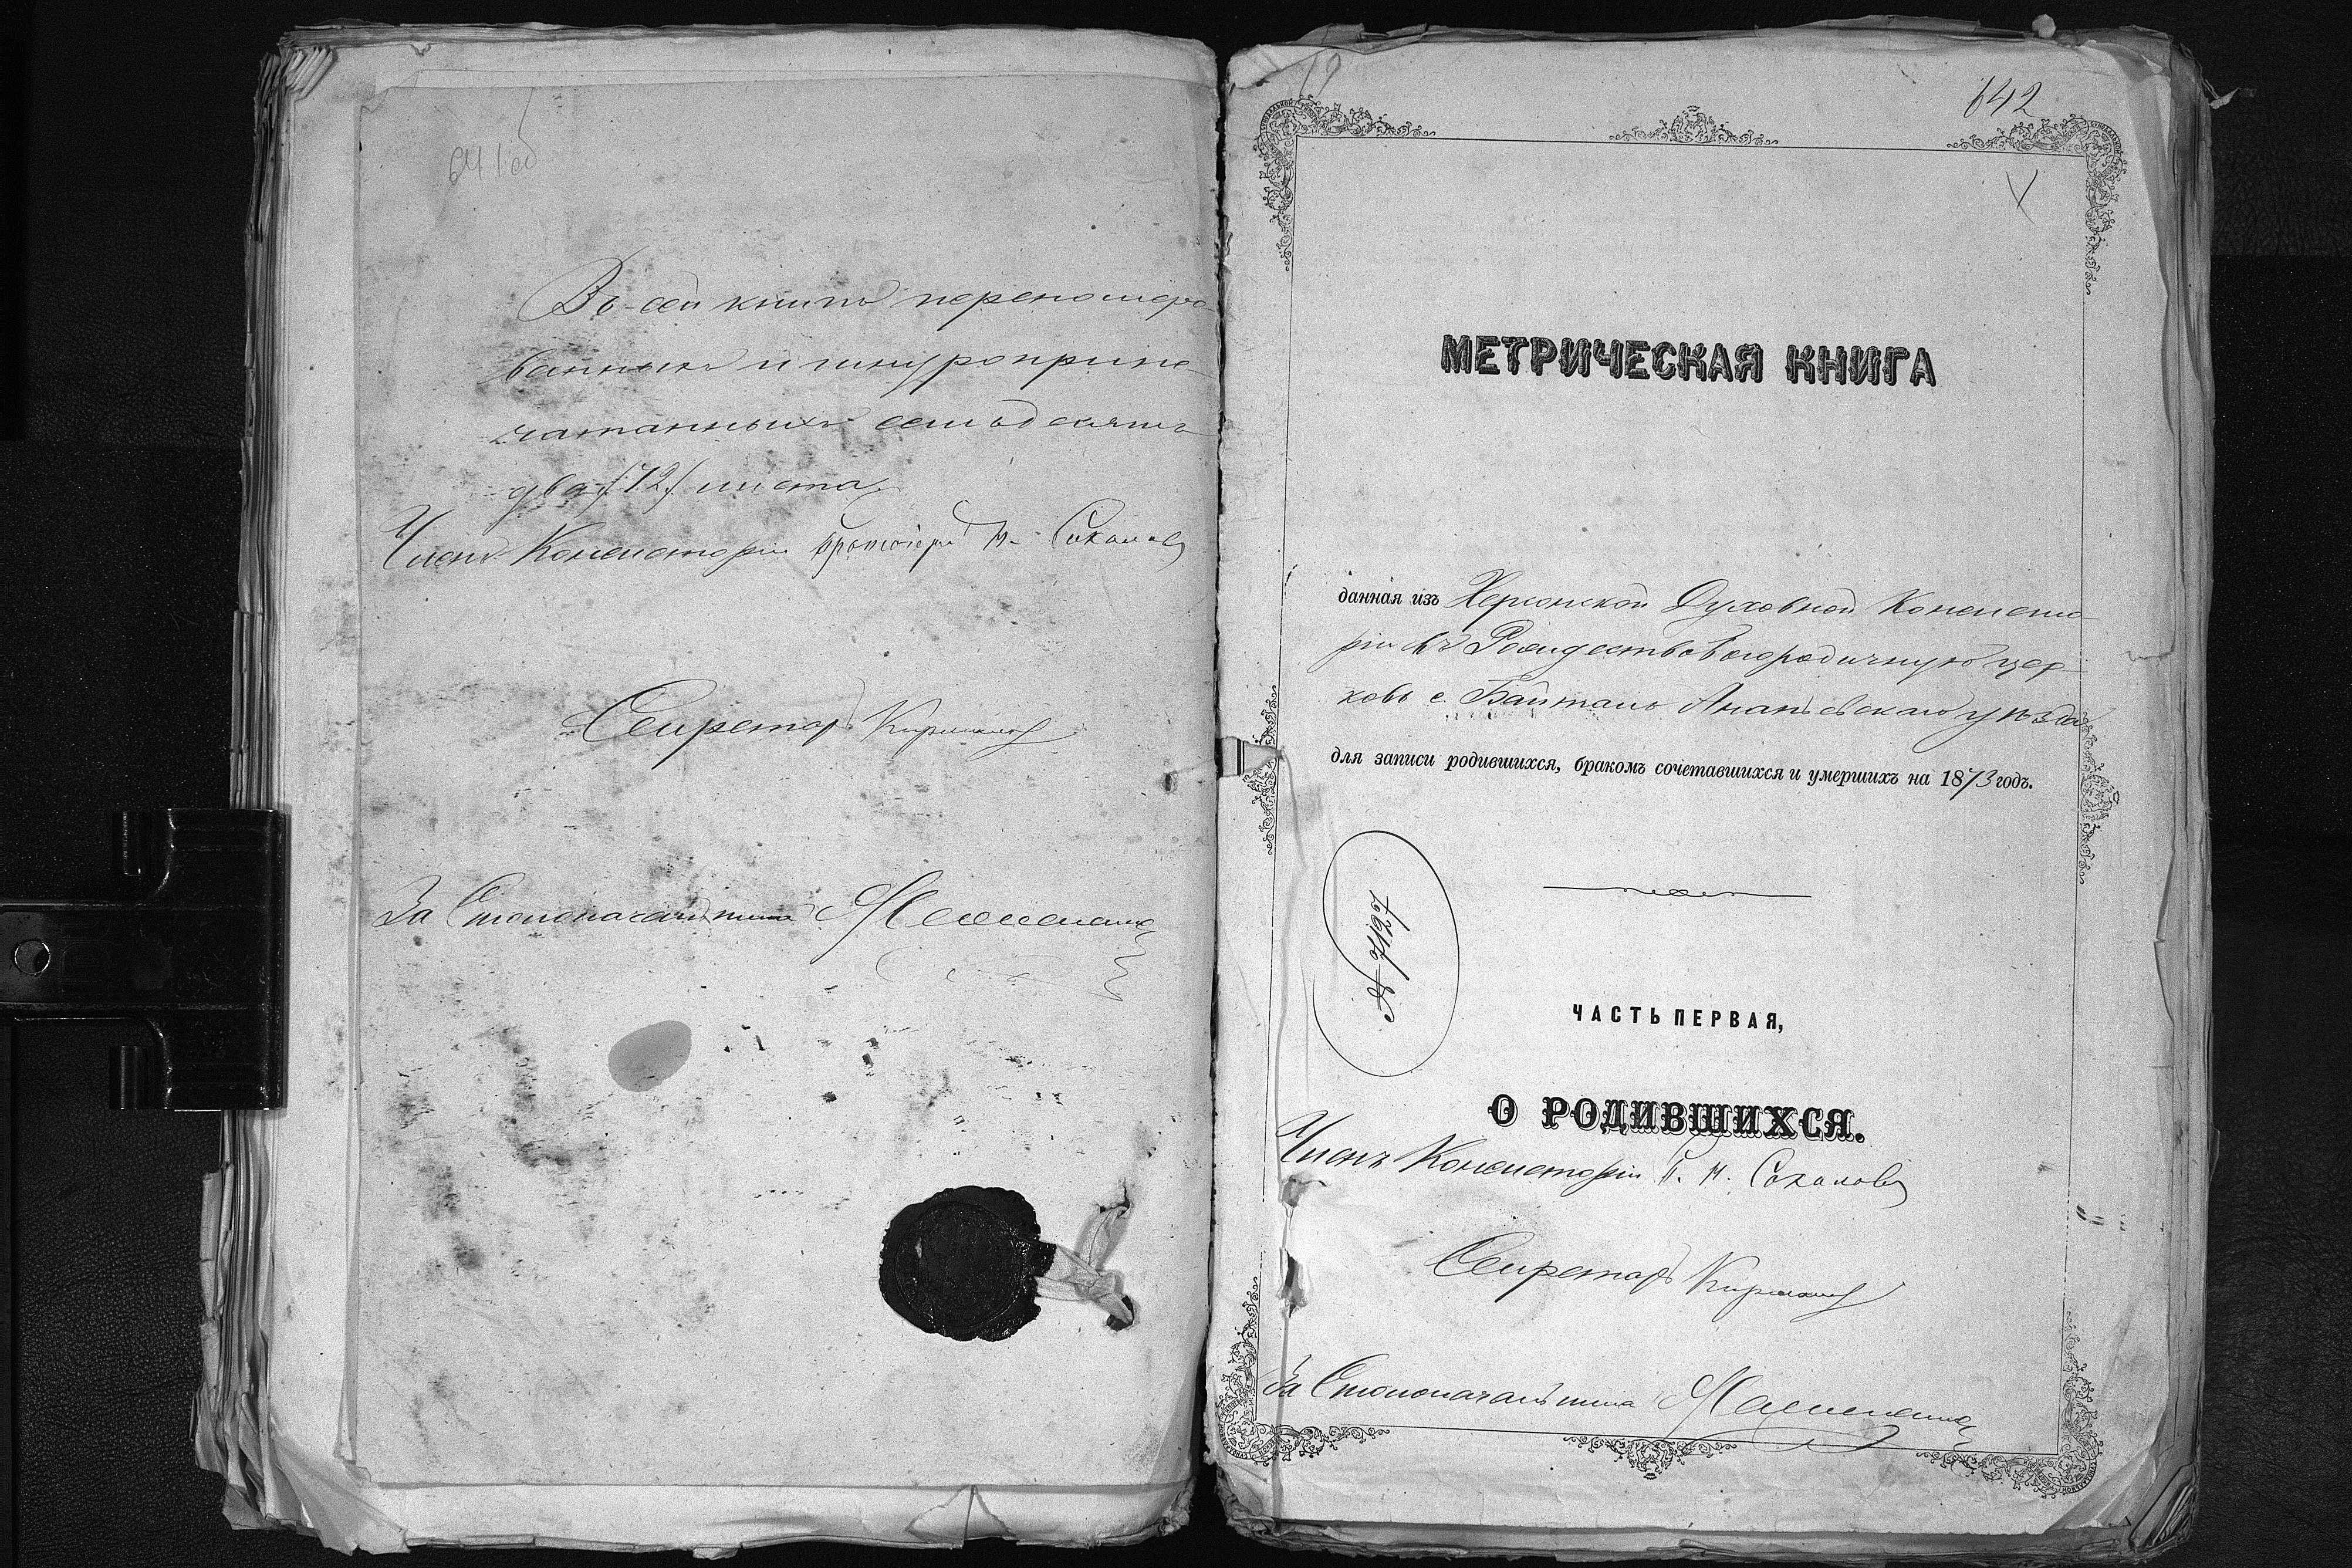 641об
Въ сей книгѣ перенумеро-
ванныхъ и шнуроприпе-
чатанныхъ семьдесятъ
два /72/ листа
Членъ Консисторіи протоіерей М. Соколовъ
Секретарь
За Столоначальника
642
МЕТРИЧЕСКАЯ КНИГА
данная изъ Херсонской Духовной Консисто-
ріи въ Рождествобогородичную цер-
ковь с. Байталъ Ананьевскаго уѣзда
для записи родившихся, бракомъ сочетавшихся и умершихъ на 1873 годъ.
ЧАСТЬ ПЕРВАЯ,
О РОДИВШИХСЯ.
Членъ Консисторіи П. М. Соколовъ
Секретарь
За Столоначальника